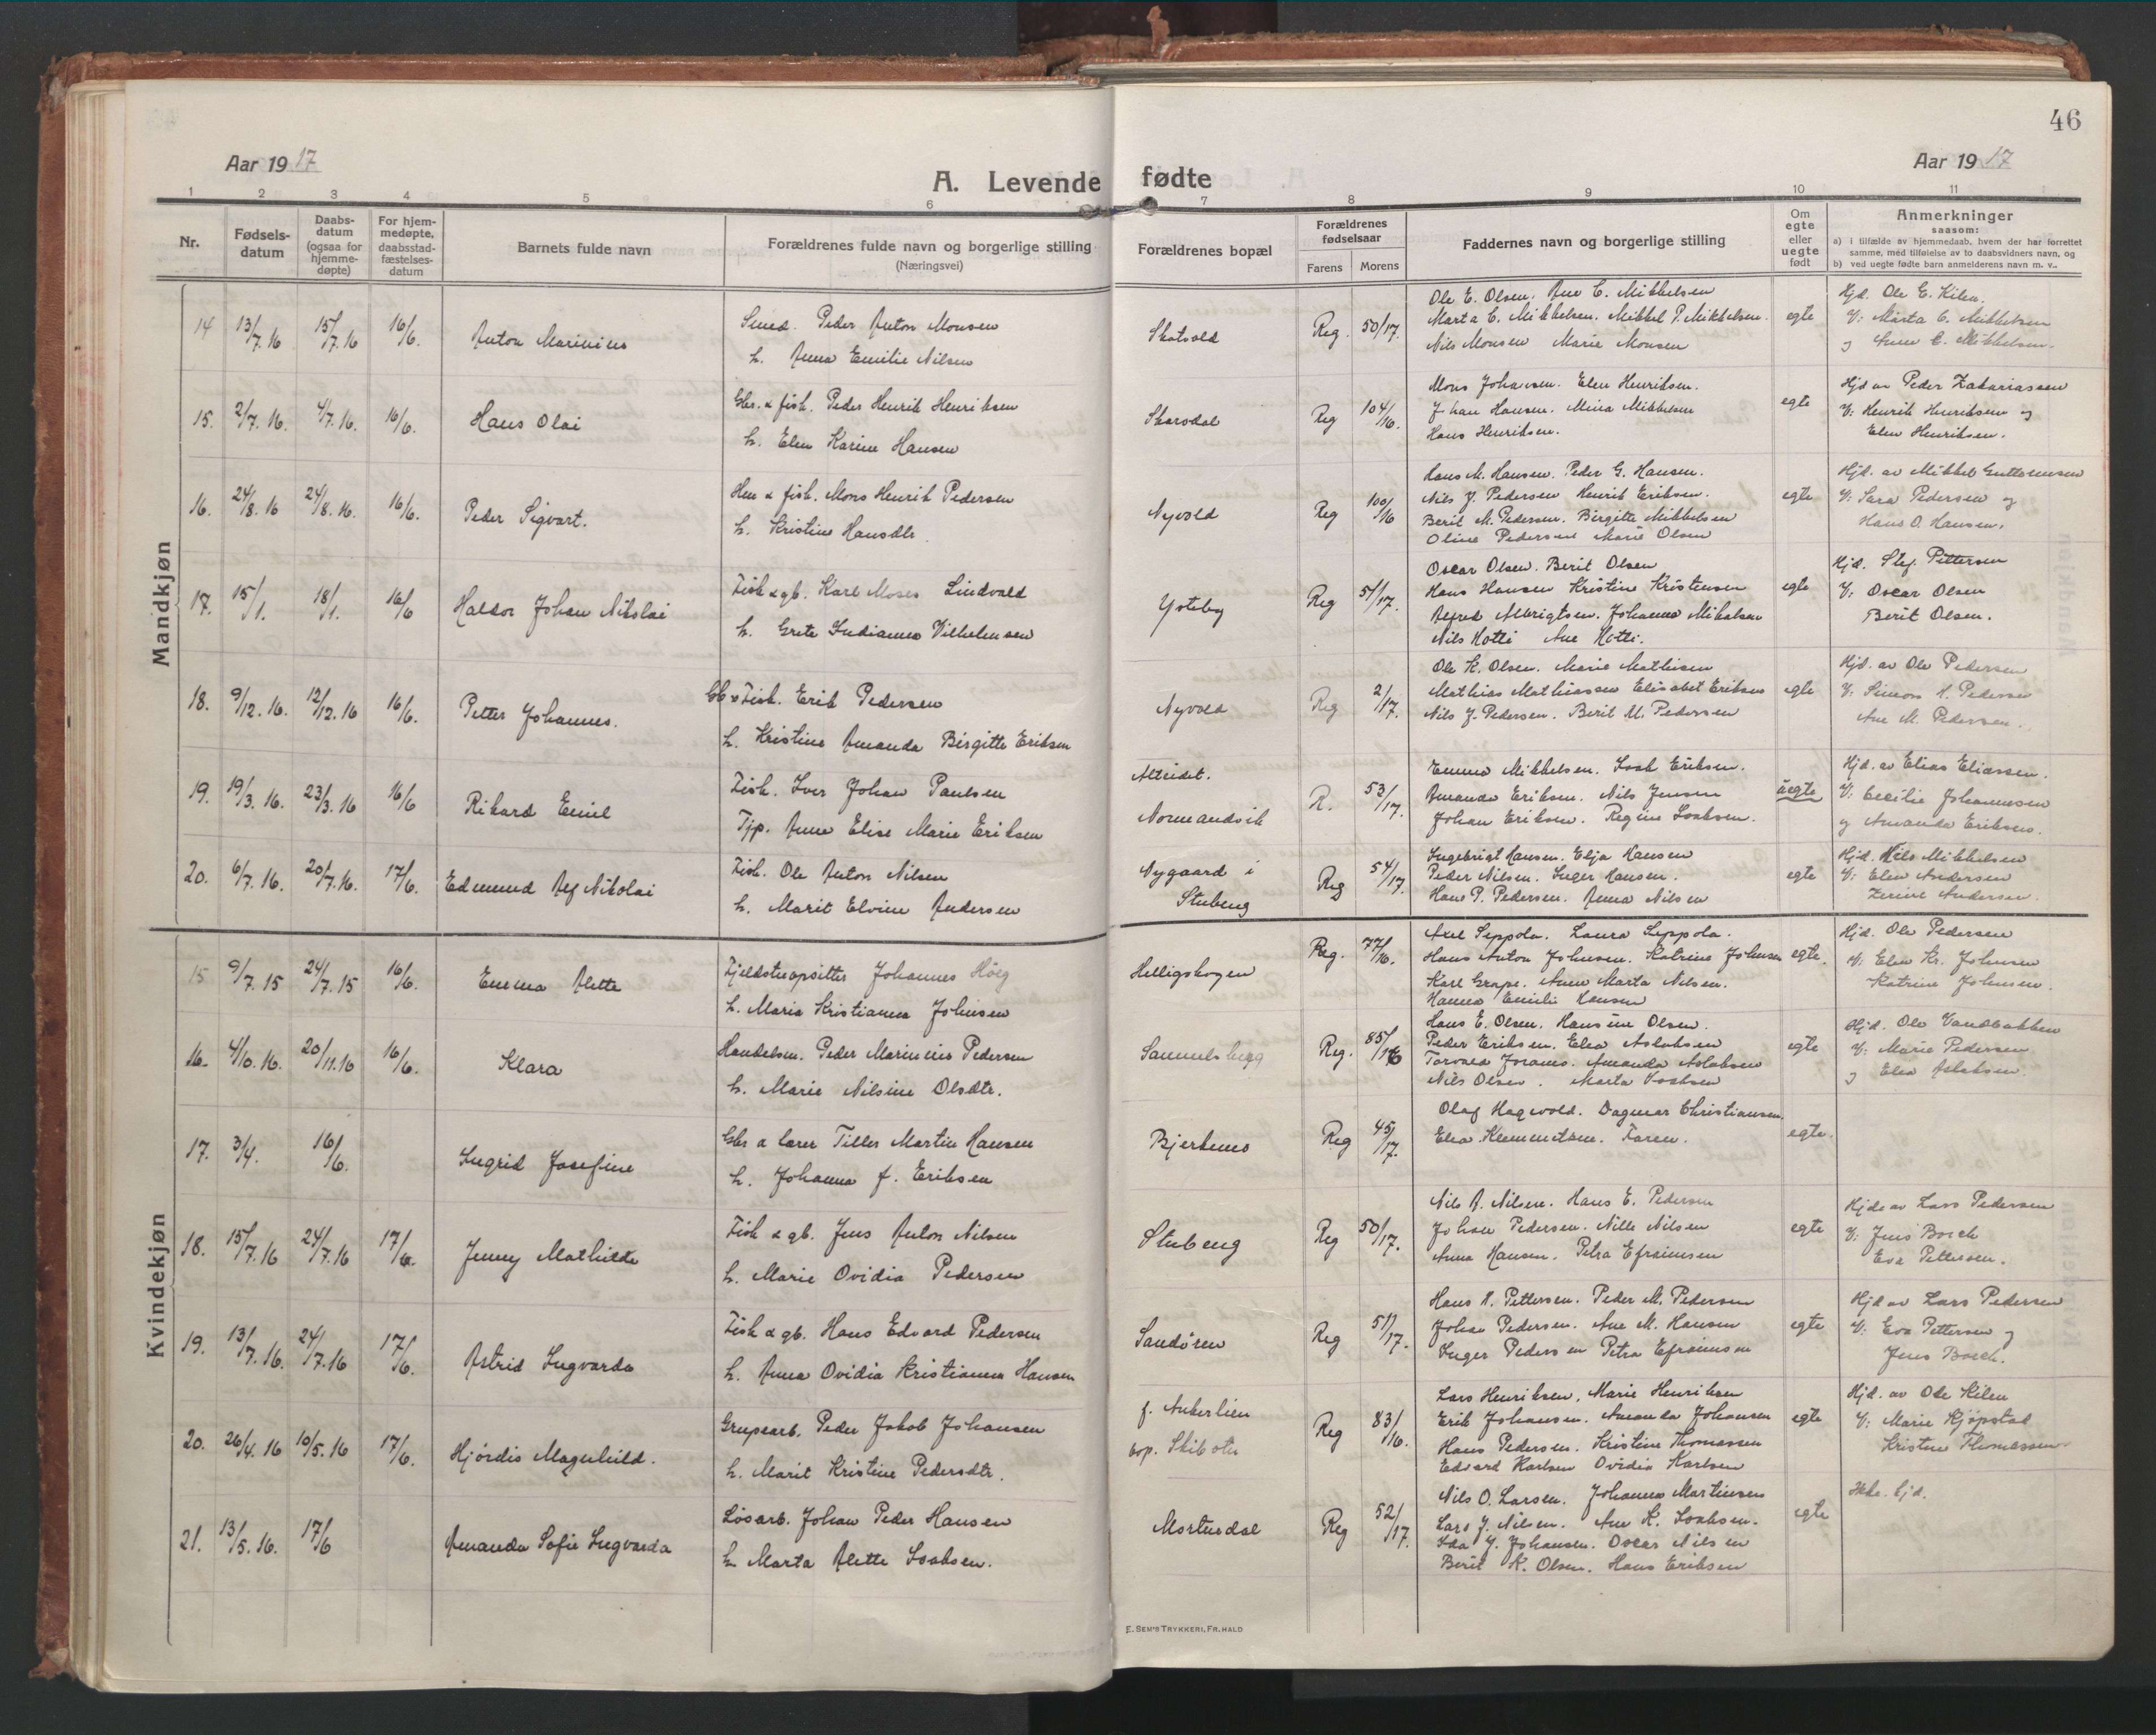 46
Aar 1917
A. Levende fødte
Aar 1917
1 2 3 4 5 6 7 8 9 10 11
Nr.
Fødsels-
datum
Daabs-
datum
(ogsaa for
hjemme-
døpte)
For hjem-
medøpte,
daabsstad-
fæstelses-
datum
Barnets fulde navn
Forældrenes fulde navn og borgerlige stilling
(Næringsvei)
Forældrenes bopæl
Forældrenes
fødselsaar
Farens
Morens
Faddernes navn og borgerlige stilling
Om
egte
eller
uegte
født
Anmerkninger
saasom:
a) i tilfælde av hjemmedaab, hvem der har forrettet
samme, med tilføielse av to daabsvidners navn, og
b) ved uegte fødte barn anmelderens navn m. v..
Mandkjøn
14 13/7.16 15/7.16 16/6. Anton Marinius
Smed. Peder Anton Monsen
h. Anna Emilie Nilsen
Skatvold
Reg. 50/17.
Ole E. Olsen. Ane C. Mikkelsen
Marta C. Mikkelsen. Mikkel P. Mikkelsen.
Nils Monsen Marie Monsen
egte
Hjd. Ole E. Kilen.
V: Marta C. Mikkelsen
og Anne C. Mikkelsen.
15. 2/7.16. 4/7.16. 16/6. Hans Olai
Gbr. & fisk. Peder Henrik Henriksen
h. Elen Karine Hansen
Skarsdal
Reg 104/16.
Mons Johansen. Elen Henriksen.
Johan Hansen. Mina Mikkelsen
Hans Henriksen.
egte
Hjd av Peder Zakariassen
V: Henrik Henriksen og
Elen Henriksen.
16. 24/8.16 24/8.16. 16/6. Peder Sigvart.
& fisk. Mons Henrik Pedersen
h. Kristine Hansdtr.
Nyvold
Reg 100/16
Hans M. Hansen. Peder G. Hansen.
Nils J. Pedersen Henrik Eriksen.
Berit M. Pedersen. Birgitte Mikkelsen
Oline Pedersen Marie Olsen
egte
Hjd. av Mikkel Guttormsen
V: Sara Pedersen og
Hans O. Hansen.
17. 15/1. 18/1. 16/6 Haldor Johan Nikolai
Fisk & gb. Karl Moses Lindvald
h. Grete Indianna Vilhelmsen
Ysteby
Reg 51/17.
Oscar Olsen. Berit Olsen
Hans Hansen Kristine Kristensen
Alfred Albrigtsen. Johanna Mikalsen
Nils Hotti Ane Hotti.
egte
Hjd. Stef. Pettersen
V: Oscar Olsen
Berit Olsen.
18. 9/12.16. 12/12.16 16/6. Petter Johannes.
Gb & Fisk. Erik Pedersen
h. Kristine Amanda Birgitte Eriksen
Nyvold
Reg 2/17.
Ole K. Olsen. Marie Mathisen
Mathias Mathiassen Elisabet Eriksen
Nils J. Pedersen. Berit M. Pedersen
egte
Hjd. av Ole Pedersen
V: Simon A. Pedersen
Ane M. Pedersen.
19. 19/3.16. 23/3.16 16/6 Rikard Emil
Fisk. Iver Johan Paulsen
Tjp. Anna Elise Marie Eriksen
Alteidet.
Normandsvik
R. 53/17.
Emma Mikkelsen. Isak Eriksen.
Amanda Eriksen. Nils Jensen
Johan Eriksen. Regine Isaksen.
uegte
Hjd. av Elias Eliassen.
V: Cecilie Johannesen
og Amanda Eriksen.
20. 6/7.16. 20/7.16. 17/6. Edmund Alf Nikolai
Fisk. Ole Anton Nilsen
h. Marit Elvine Andersen
Nygaard i
Stubeng
Reg 54/17.
Ingebrigt Hansen. Elja Hansen
Peder Nilsen. Inger Hansen.
Hans P. Pedersen. Anna Nilsen
egte
Hjd. Nils Mikkelsen
V: Elen Andersen
Andersen.
Kvindekjøn
15 9/7.15 24/7.15 16/6. Emma Alette
Fjeldstuopsitter Johannes Høeg
h. Maria Kristianna Johnsen
Helligskogen
Reg. 77/16.
Axel Seppola. Laura Seppola.
Hans Anton Johnsen. Katrine Johnsen
Karl Grape. Anne Marta Nilsen.
Hanna Emilie Hansen
egte.
Hjd. Ole Pedersen
V: Elen Kr. Johnsen
Katrine Johnsen.
16. 4/10.16. 20/11.16 16/6. Klara
Handelsm. Peder Marinius Pedersen
h. Marie Nilsine Olsdtr.
Samuelsbygg
Reg. 85/16
Hans E. Olsen. Hansine Olsen.
Peder Eriksen. Elea Aslaksen
Torvald Amanda Aslaksen
Nils Olsen. Marta Isaksen
egte
Hjd. Ole Vandbakken
V: Marie Pedersen
og Elea Aslaksen.
17. 3/4. 16/6. Ingrid Josefine
Gbr & lærer Tiller Martin Hansen
h. Johanna f. Eriksen
Bjerkemo
Reg 45/17.
Olaf Hagvold. Dagmar Christiansen.
Elea Klemmetsen. Faren.
egte.
18. 15/7.16 24/7.16 17/6. Jenny Mathilde
Fisk & gb. Jens Anton Nilsen
h. Marie Ovidia Pedersen
Stubeng
Reg 50/17.
Nils A. Nilsen. Hans E. Pedersen
Johan Pedersen. Nille Nilsen
Anna Hansen. Petra Efraimsen
egte
Hjd av Lars Pedersen
V: Jens Borch
Eva Pettersen.
19. 13/7.16. 24/7.16 17/6. Astrid Ingvarda
Fisk & gb. Hans Edvard Pedersen
h. Anna Ovidia Kristianna Hansen
Sandøren
Reg 51/17.
Hans A. Pettersen. Peder M. Pedersen
Johan Pedersen. Ane M. Hansen
Inger Pedersen Petra Efraimsen
egte
Hjd av Lars Pedersen
V: Eva Pettersen og
Jens Borch.
20. 26/4.16 10/5.16 17/6. Hjørdis Magnhild.
Grupearb. Peder Jakob Johansen
h. Marit Kristine Pedersdtr.
f. Ankerlien
bop. Skibotn
Reg 83/16.
Lars Henriksen, Marie Henriksen
Erik Johansen. Amanda Johansen
Hans Pedersen. Kristine Thomassen
Edvard Karlsen Ovidia Karlsen
egte
Hjd. av Ole Kilen
V: Marie Kjøpstad
Kristine Thomassen
21. 13/5.16. 17/6 Amanda Sofie Ingvarda
Løsarb. Johan Peder Hansen
h. Marta Alette Isaksen.
Mortendal
Reg 52/17.
Nils O. Larsen. Johanna Martinsen
Lars J. Nilsen. Ane K. Isaksen.
Ida J. Johansen. Oscar Nilsen
Berit K. Olsen. Hans Eriksen
egte
Ikke hjd.
E. SEM'S TRYKKERI, FR.HALD